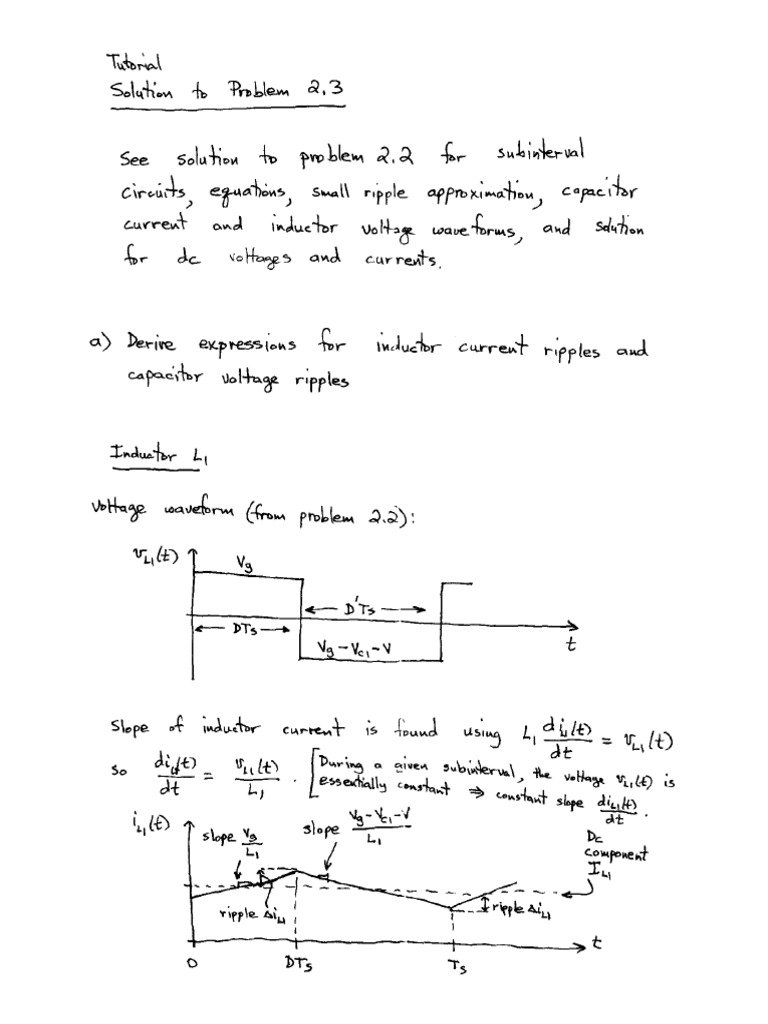 Tutorial
Solution to Problem 2.3
See solution to problem 2.2 for subinterval
circuits, equations, small ripple approximation, capacitor
current and inductor voltage waveforms, and solution
for dc voltages and currents.
a) Derive expressions for inductor current ripples and
capacitor voltage ripples
Inductor L₁
Voltage waveform (from problem 2.2):
v_L1(t)
Vg
← D'Ts →
← DTs →
Vg - Vc1 - V
t
Slope of inductor current is found using L₁ di_L1(t)/dt = v_L1(t)
so di_L1(t)/dt = v_L1(t)/L₁ . [During a given subinterval, the voltage v_L1(t) is
essentially constant ⇒ constant slope di_L1(t)/dt.
i_L1(t)
slope Vg/L₁
slope (Vg-Vc1-V)/L₁
Dc
component
I_L1
ripple Δi_L1
ripple Δi_L1
t
0
DTs
Ts